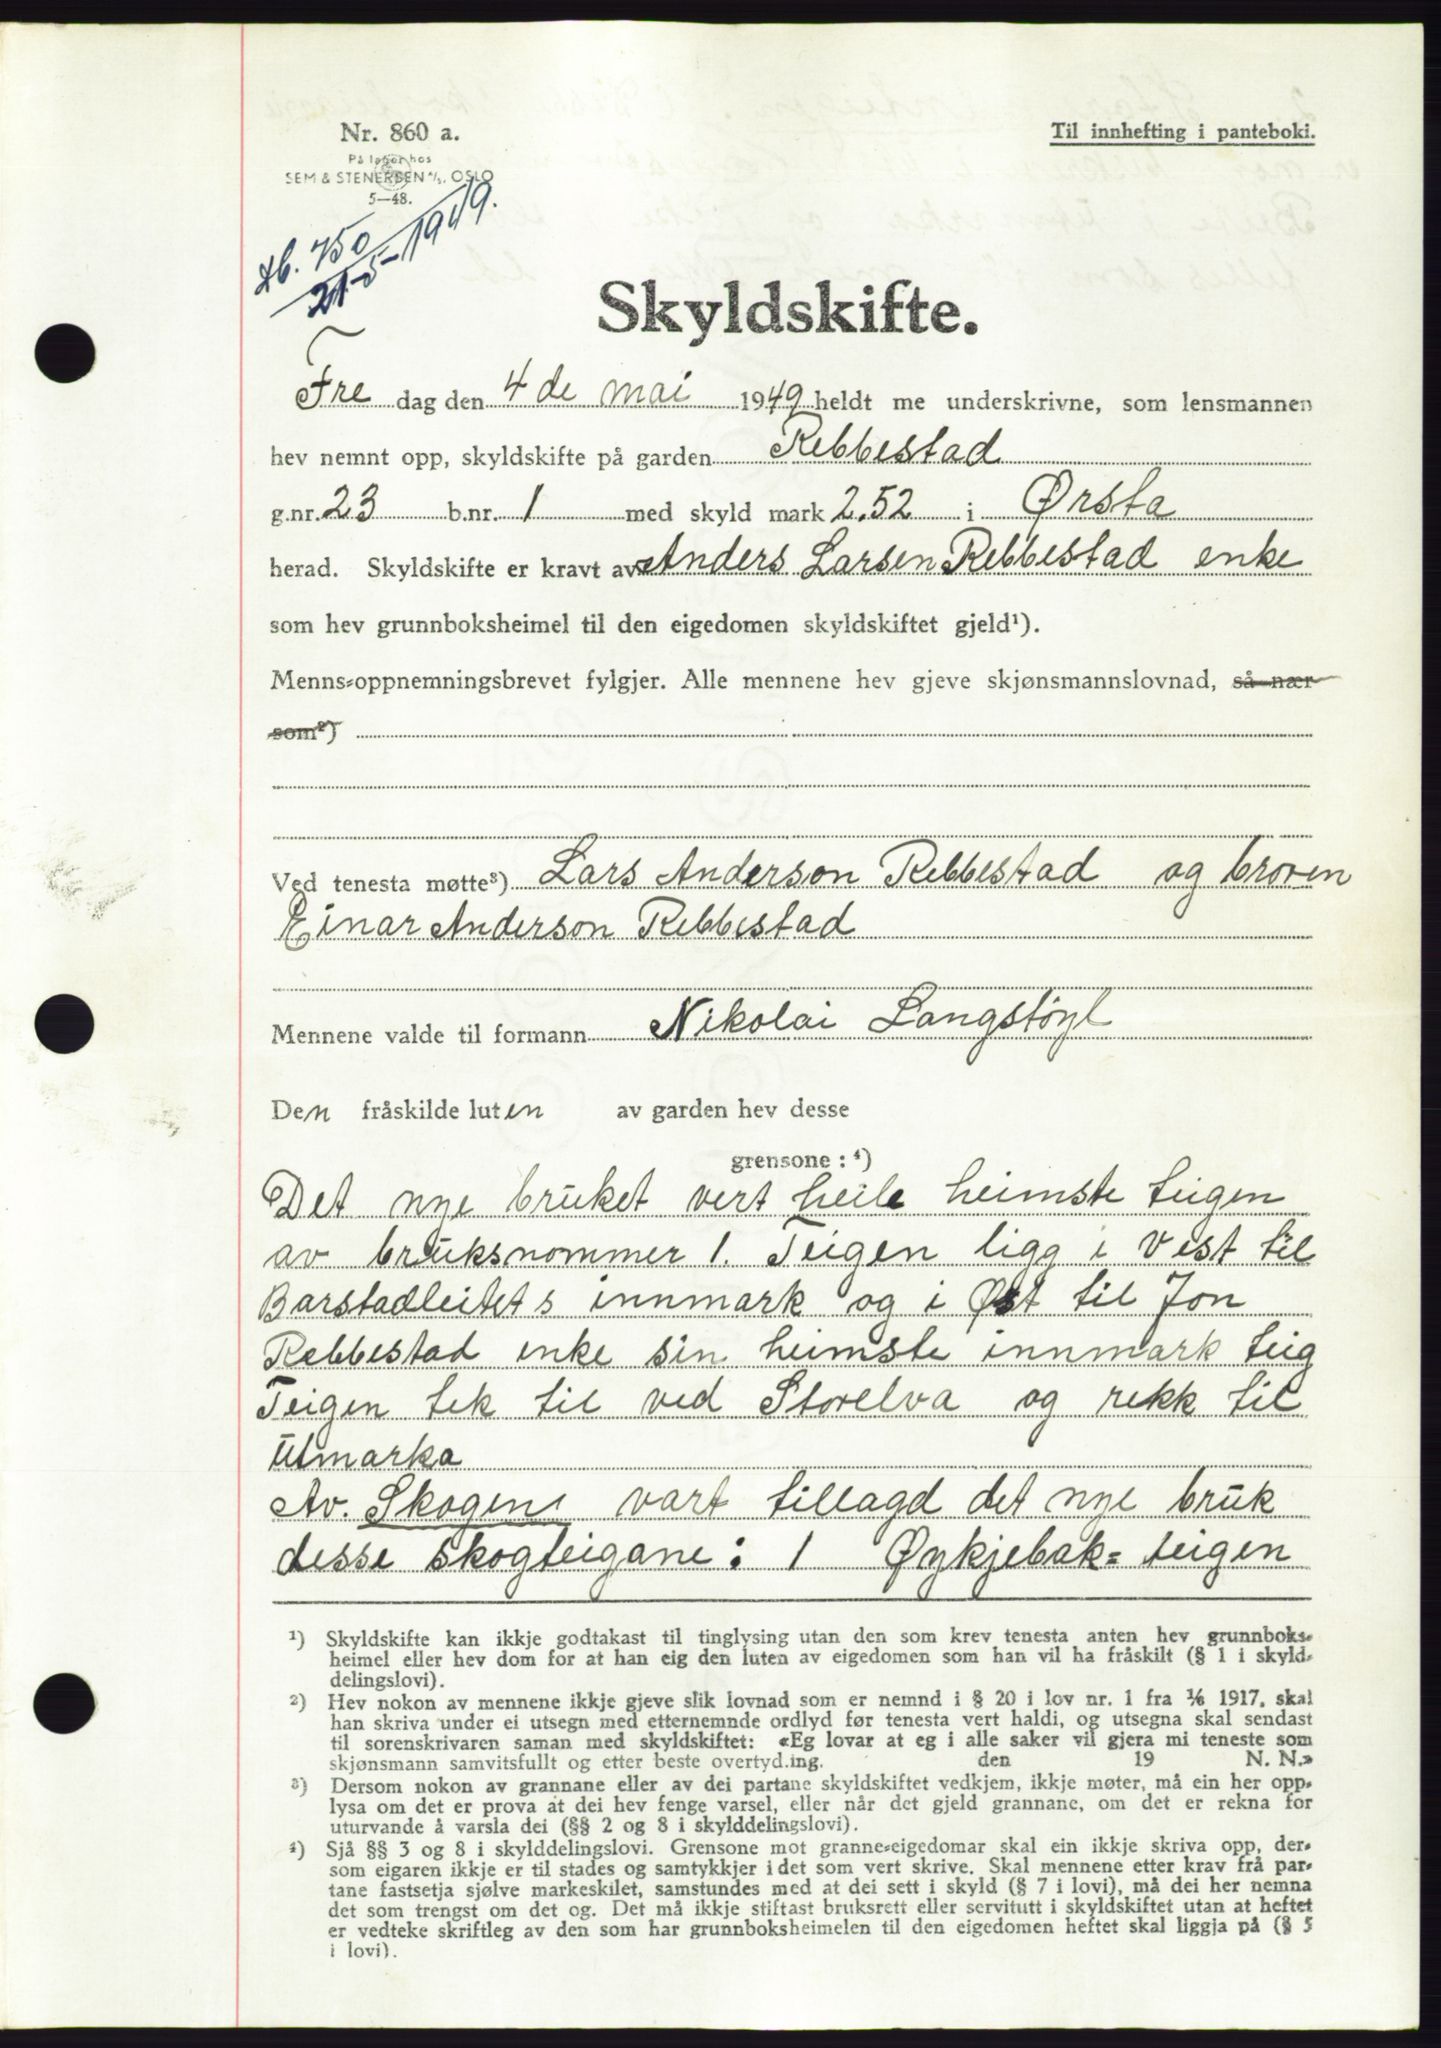 Nr. 860 a.
På lager hos
SEM & STENERSEN A/S, OSLO
5—48.
Til innhefting i panteboki.
db. 750
21-5-1949.
Skyldskifte.
Fre dag den 4 de mai 1949 heldt me underskrivne, som lensmannen
hev nemnt opp, skyldskifte på garden Rebbestad
g.nr. 23 b.nr. 1 med skyld mark 2,52 i Ørsta
herad. Skyldskifte er kravt av Anders Larsen Rebbestad enke
som hev grunnboksheimel til den eigedomen skyldskiftet gjeld¹).
Menns-oppnemningsbrevet fylgjer. Alle mennene hev gjeve skjønsmannslovnad, så nær
som²)
Ved tenesta møtte³) Lars Anderson Rebbestad og broren
Einar Anderson Rebbestad
Mennene valde til formann Nikolai Langstöyl
Den fråskilde luten av garden hev desse
grensone: ⁴)
Det nye brūket vert heile heimste teigen
av brūksnommer 1. Teigen ligg i Vest til
Barstadleitets innmark og i Øst til Jon
Rebbestad enke sin heimste innmark teig
Teigen tek til ved Storelva og rekk til
Utmarka
Av. Skogen vart tillagd det nye brūk
desse skogteigane: 1 Øykjebak= teigen
¹) Skyldskifte kan ikkje godtakast til tinglysing utan den som krev tenesta anten hev grunnboks-
heimel eller hev dom for at han eig den luten av eigedomen som han vil ha fråskilt (§ 1 i skyld-
delingslovi).
²) Hev nokon av mennene ikkje gjeve slik lovnad som er nemnd i § 20 i lov nr. 1 fra 1/6 1917, skal
han skriva under ei utsegn med etternemnde ordlyd før tenesta vert haldi, og utsegna skal sendast
til sorenskrivaren saman med skyldskiftet: «Eg lovar at eg i alle saker vil gjera mi teneste som
skjønsmann samvitsfullt og etter beste overtyd.ing. den 19 N. N.»
³) Dersom nokon av grannane eller av dei partane skyldskiftet vedkjem, ikkje møter, må ein her opp-
lysa om det er prova at dei hev fenge varsel, eller når det gjeld grannane, om det er rekna for
uturvande å varsla dei (§§ 2 og 8 i skylddelingslovi).
⁴) Sjå §§ 3 og 8 i skylddelingslovi. Grensone mot granne-eigedomar skal ein ikkje skriva opp, der-
som eigaren ikkje er til stades og samtykkjer i det som vert skrive. Skal mennene etter krav frå par-
tane fastsetja sjølve markeskilet, samstundes med at dei sett i skyld (§ 7 i lovi), må dei her nemna
det som trengst om det og. Det må ikkje stiftast bruksrett eller servitutt i skyldskiftet utan at heftet
er vedteke skriftleg av den som har grunnboksheimelen til den eigedomen heftet skal liggja på (§ 5
i lovi).